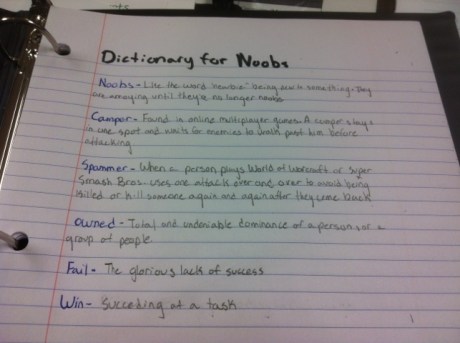 Dictionary for Noobs
Noobs - Like the word "newbie" being new to something. They
are annoying until they're no longer noobs
Camper - Found in online multiplayer games. A camper stays
in one spot and waits for enemies to walk past him before
attacking
Spammer - When a person plays World of Warcraft or Super
Smash Bros. uses one attack over and over to avoid being
killed or kill someone again and again after they come back
Owned - Total and undeniable dominance of a person or a
group of people.
Fail - The glorious lack of success
Win - Succeeding at a task